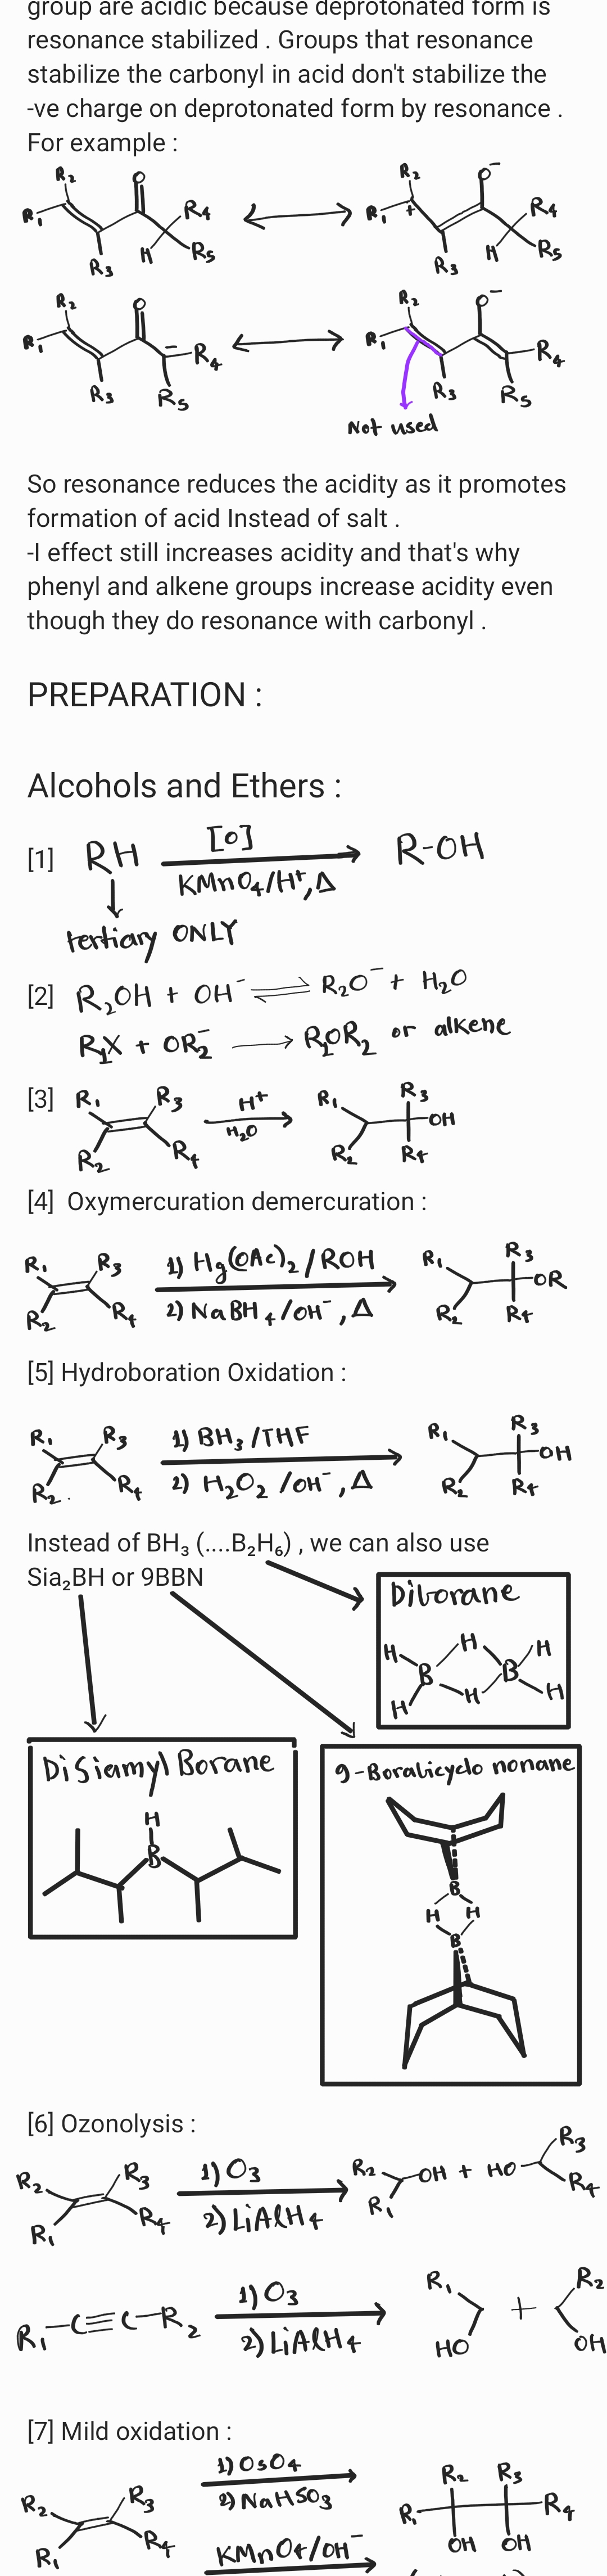 group are acidic because deprotonated form is
resonance stabilized . Groups that resonance
stabilize the carbonyl in acid don't stabilize the
-ve charge on deprotonated form by resonance .
For example :
R₂ O R₂ O⁻
R₁ R₄ R₁ + R₄
R₃ H R₅ R₃ H R₅
R₂ O R₂ O⁻
R₁ − R₄ R₁ R₄
R₃ R₅ R₃ R₅
Not used
So resonance reduces the acidity as it promotes
formation of acid Instead of salt .
-I effect still increases acidity and that's why
phenyl and alkene groups increase acidity even
though they do resonance with carbonyl .
PREPARATION :
Alcohols and Ethers :
[1] RH [O] R-OH
KMnO₄/H⁺,Δ
tertiary ONLY
[2] R₂OH + OH⁻ ⇌ R₂O⁻ + H₂O
R₁X + OR₂⁻ → R₁OR₂ or alkene
[3] R₁ R₃ H⁺ R₁ R₃
H₂O OH
R₂ R₄ R₂ R₄
[4] Oxymercuration demercuration :
R₁ R₃ 1) Hg(OAc)₂/ROH R₁ R₃
OR
R₂ R₄ 2) NaBH₄/OH⁻,Δ R₂ R₄
[5] Hydroboration Oxidation :
R₁ R₃ 1) BH₃/THF R₁ R₃
OH
R₂ R₄ 2) H₂O₂/OH⁻,Δ R₂ R₄
Instead of BH₃ (....B₂H₆) , we can also use
Sia₂BH or 9BBN
Diborane
H H H
B B
H H H
DiSiamyl Borane
H
B
9-Borabicyclo nonane
B
H H
B
[6] Ozonolysis :
R₂ R₃ 1) O₃ R₂ OH + HO R₃
R₁ R₄ 2) LiAlH₄ R₁ R₄
R₁-C≡C-R₂ 1) O₃ R₁ + R₂
2) LiAlH₄ HO OH
[7] Mild oxidation :
1) OsO₄
R₂ R₃ 2) NaHSO₃ R₂ R₃
R₁ R₄ R₁ R₄
KMnO₄/OH⁻ OH OH